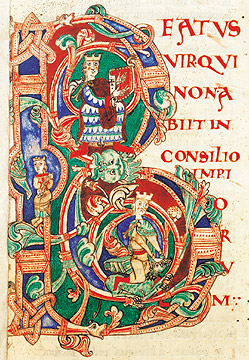 BEATUS
VIRQVI
NONA
BIIT IN
CONSILIO
IMPI
O
R
V
M